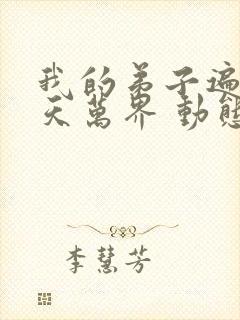 我的弟子遍
天萬界 動態
李慧芳